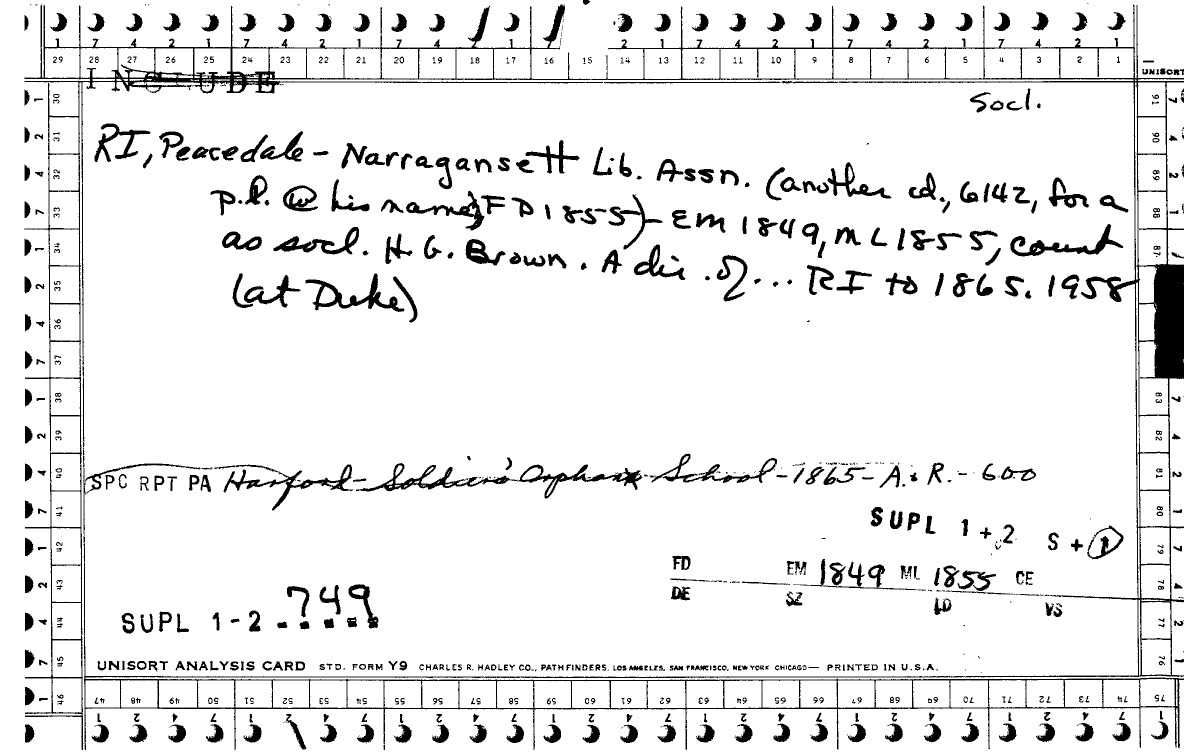 7 4 2 1 7 4 2 1 7 4 1 2 1 7 4 2 1 7 4 2 1 7 4 2 1
29 28 27 26 25 24 23 22 21 20 19 18 17 16 15 14 13 12 11 10 9 8 7 6 5 4 3 2 1
UNISORT
INCLUDE
Socl.
RI, Peacedale - Narragansett Lib. Assn. (another cd., 6142, for a
p.l. @ his name, FD 1855) - EM 1849, ML 1855, count
as socl. H. G. Brown. A dir. of... RI to 1865. 1958
(at Duke)
SPC RPT PA Harford - Soldiers' Orphans School - 1865 - A. R. - 600
SUPL 1 + 2 S + 1
FD EM 1849 ML 1855 CE
DE SZ LD VS
749
SUPL 1-2
UNISORT ANALYSIS CARD STD. FORM Y9 CHARLES R. HADLEY CO., PATHFINDERS, LOS ANGELES, SAN FRANCISCO, NEW YORK CHICAGO— PRINTED IN U.S.A.
1 30
2 31
4 32
7 33
1 34
2 35
4 36
7 37
1 38
2 39
4 40
7 41
1 42
2 43
4 44
7 45
1 46
91 7
90 4
89 2
88 1
87 7
83 7
82 4
81 2
80 1
79 7
78 4
77 2
76 1
47 48 49 50 51 52 53 54 55 56 57 58 59 60 61 62 63 64 65 66 67 68 69 70 71 72 73 74 75
1 2 4 7 1 2 4 7 1 2 4 7 1 2 4 7 1 2 4 7 1 2 4 7 1 2 4 7 1